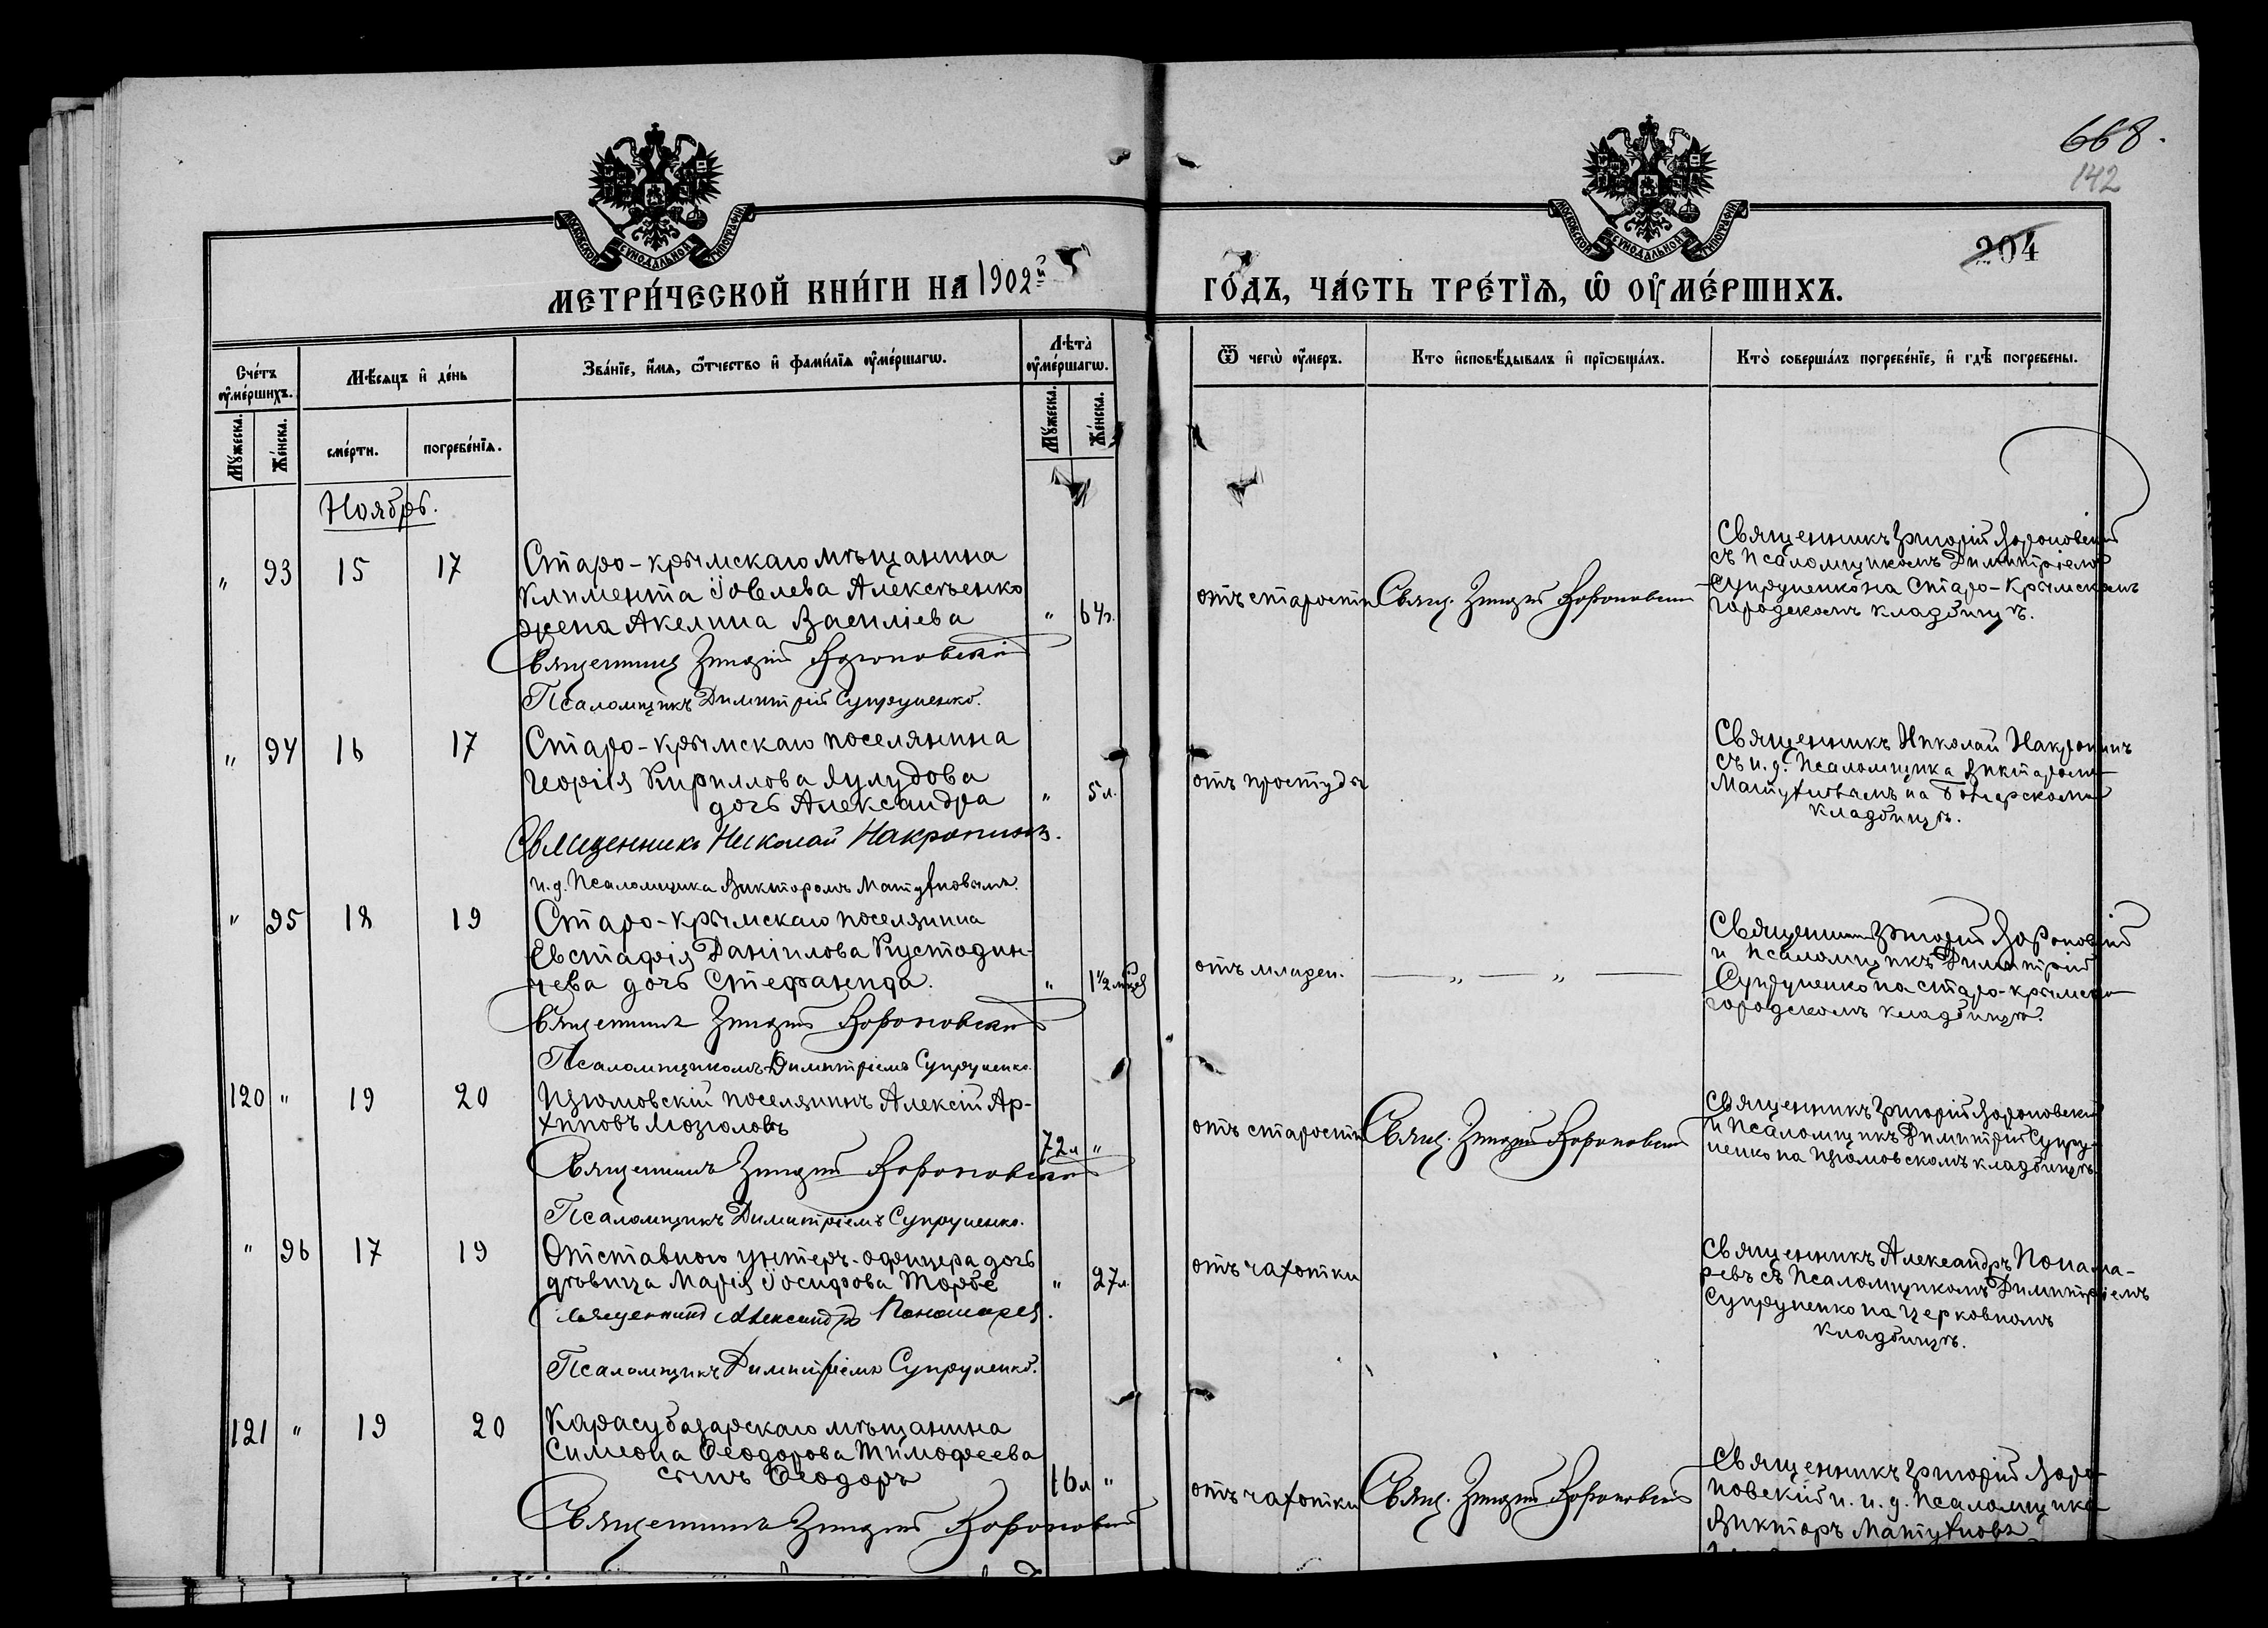 668.
142
204
МОСКОВСКОЙ СУНОДАЛЬНОЙ ТИПОГРАФІИ
МОСКОВСКОЙ СУНОДАЛЬНОЙ ТИПОГРАФІИ
МЕТРИ́ЧЕСКОЙ КНИ́ГИ НА 1902й
ГО́ДЪ, ЧА́СТЬ ТРЕ́ТЇѦ, Ѡ ОУМЕ́РШИХЪ.
Сче́тъ оумершихъ.
Мужеска.
Женска.
Мѣсяцъ и де́нь
сме́рти.
погребе́нїѧ.
Зва́нїе, и҆́мѧ, ѻ҆́тчество и҆ фами́лїѧ оу҆ме́ршагѡ.
Лѣта̀ оу҆ме́ршагѡ.
Мужеска.
Женска.
Ѿ чегѡ̀ оу҆́меръ.
Кто и҆сповѣ́дывалъ и҆ прїѡбща́лъ.
Кто̀ соверша́лъ погребе́нїе, и҆ гдѣ̀ погребены.
Ноябрь.
" 93 15 17
Старо-крымскаго мѣщанина
Климента Іовлева Алексѣенко
жена Акелина Василіева
" 64г.
Священникъ Григорій Вороновскій
Псаломщикъ Димитрій Супруненко.
отъ старости
Свящ. Григорій Вороновскій
Священникъ Григорій Вороновскій
съ Псаломщикомъ Димитріемъ
Супруненко на Старо-Крымскомъ
городскомъ кладбищѣ.
" 94 16 17
Старо-крымскаго поселянина
Георгія Кириллова Яулудова
дочь Александра
" 5 л.
Священникъ Николай Накропинъ.
и. д. Псаломщика Викторомъ Матухновымъ.
отъ простуды
Священникъ Николай Накропинъ
съ и. д. Псаломщика Викторомъ
Матухновымъ на Болгарскомъ
кладбищѣ.
" 95 18 19
Старо-крымскаго поселянина
Евстафія Даніилова Кустодин-
чева дочь Стефанида.
" 1½ мѣс
Священникъ Григорій Вороновскій
Псаломщикомъ Димитріемъ Супруненко.
отъ младен.
— " — " —
Священникъ Григорій Вороновскій
и Псаломщикъ Димитрій
Супруненко на Старо-крымско
городскомъ кладбищѣ.
120 " 19 20
Изюмовскій поселянинъ Алексій Ар-
хиповъ Мозголовъ
72 л "
Священникъ Григорій Вороновскій
Псаломщикъ Димитріемъ Супруненко.
отъ старости
Свящ. Григорій Вороновскій
Священникъ Григорій Вороновскій
и Псаломщикъ Димитрій Супру-
ненко на Изюмовскомъ кладбищѣ.
" 96 17 19
Отставного унтеръ-офицера дочь
дѣвица Марія Іосифова Торбе
" 27 л.
Священникъ Александръ Пономаревъ.
Псаломщикъ Димитріемъ Супруненко.
отъ чахотки
Священникъ Александръ Понама-
ревъ съ Псаломщикомъ Димитріемъ
Супруненко на Церковномъ
кладбищѣ.
121 " 19 20
Карасубазарскаго мѣщанина
Симеона Ѳеодорова Тимофеева
сынъ Ѳеодоръ
16 л "
Священникъ Григорій Вороновскій
отъ чахотки
Свящ. Григорій Вороновскій
Священникъ Григорій Воро-
новскій и. и. д. Псаломщика
Викторъ Матухновъ